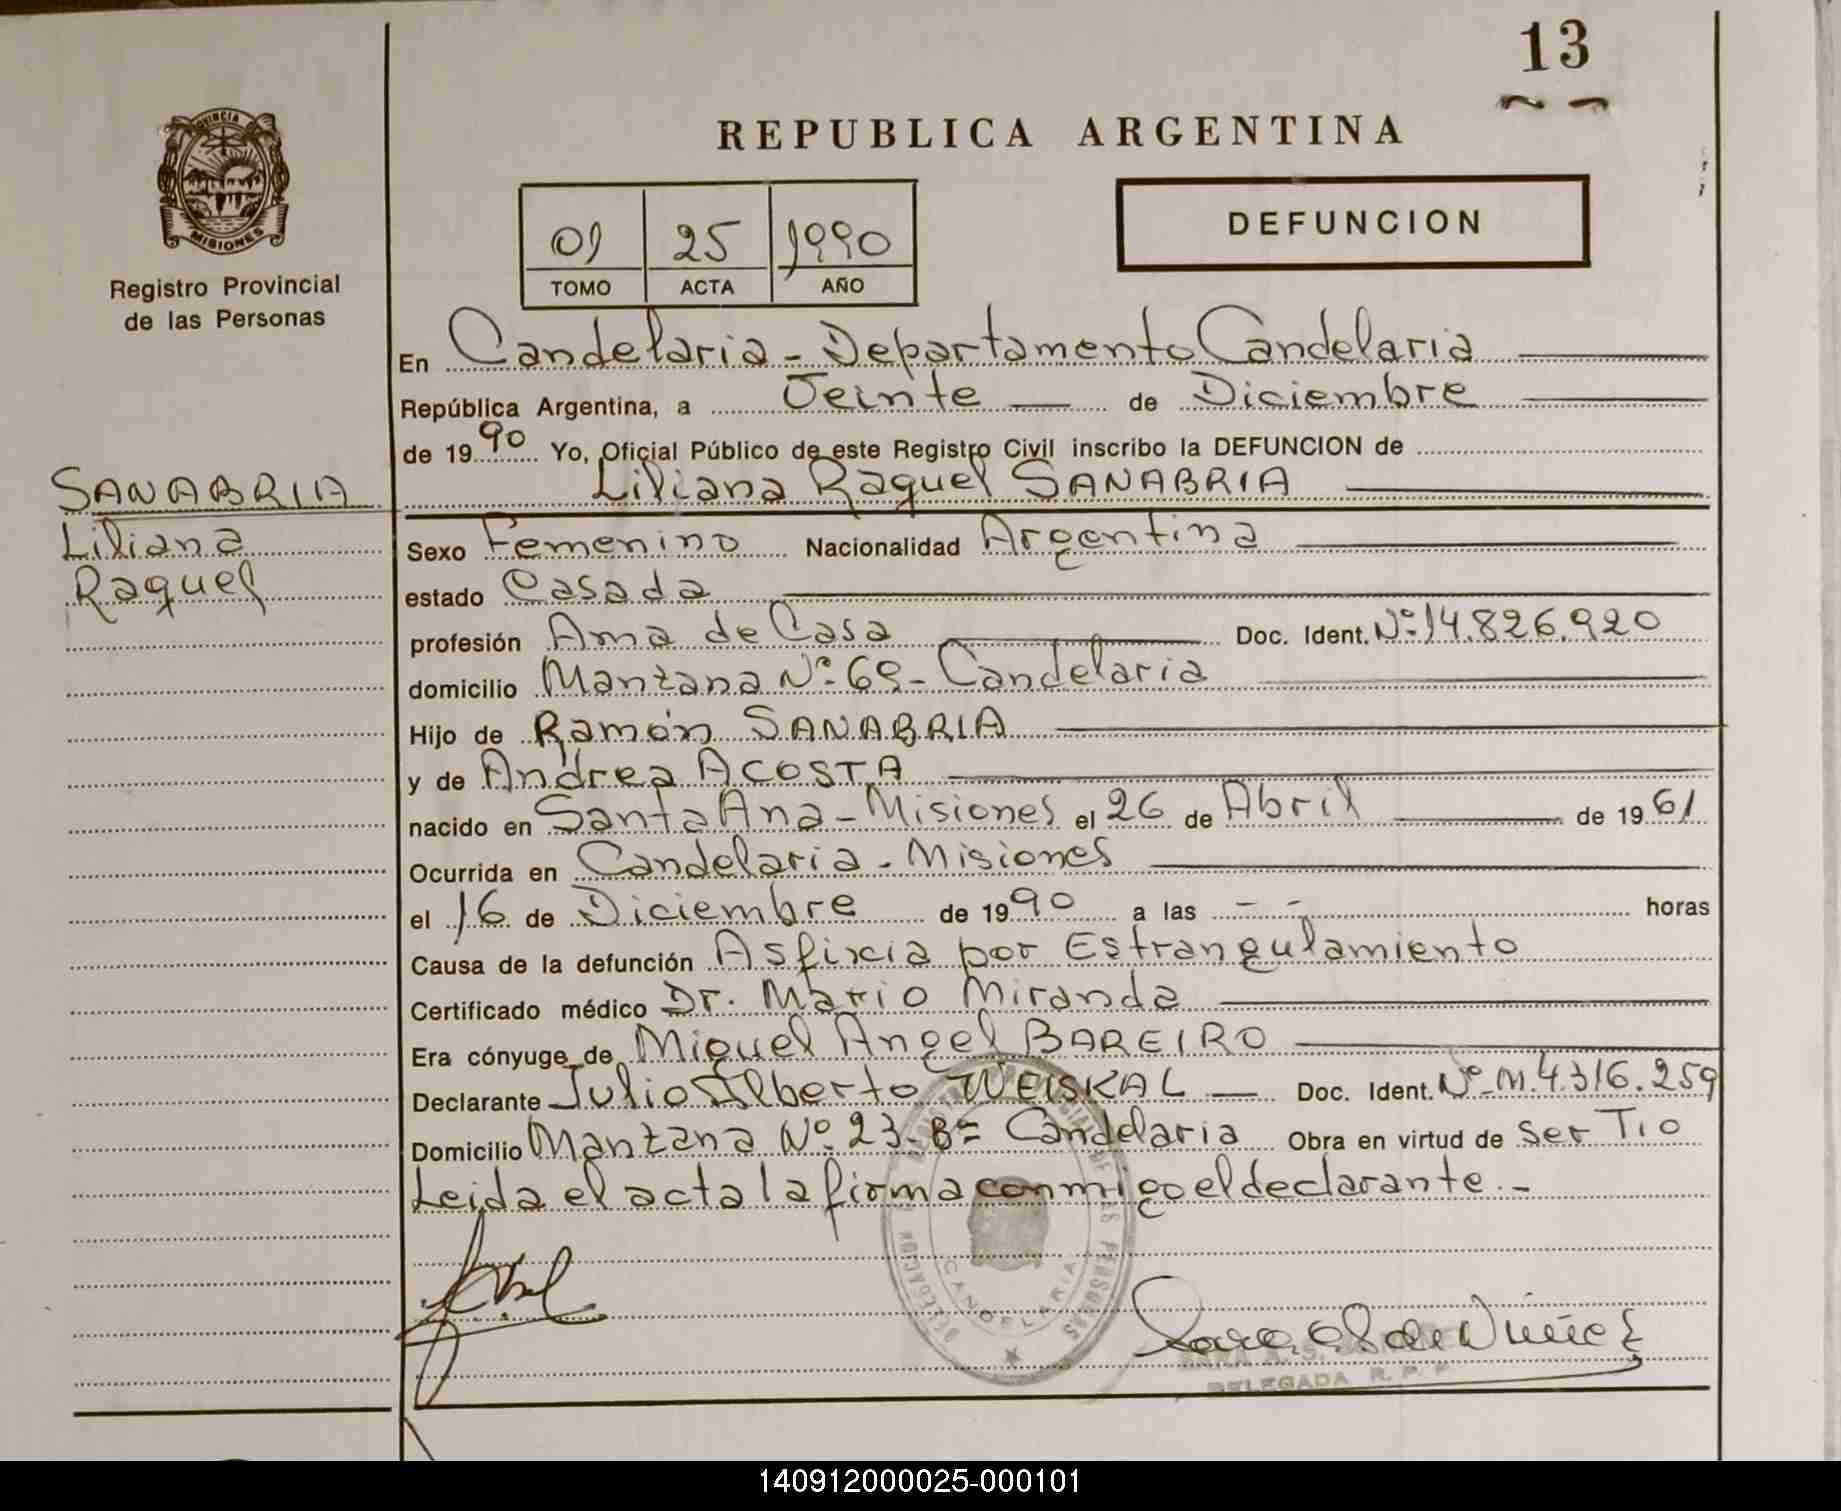 13
PROVINCIA
MISIONES
Registro Provincial
de las Personas
REPUBLICA ARGENTINA
01 25 1990
TOMO ACTA AÑO
DEFUNCION
En Candelaria - Departamento Candelaria
República Argentina, a Veinte de Diciembre
de 1990 Yo, Oficial Público de este Registro Civil inscribo la DEFUNCION de
Liliana Raquel SANABRIA
SANABRIA
Liliana
Raquel
Sexo Femenino Nacionalidad Argentina
estado Casada
profesión Ama de Casa Doc. Ident. Nº 14.826.920
domicilio Manzana Nº 69 - Candelaria
Hijo de Ramón SANABRIA
y de Andrea ACOSTA
nacido en Santa Ana - Misiones el 26 de Abril de 1961
Ocurrida en Candelaria - Misiones
el 16 de Diciembre de 1990 a las - - horas
Causa de la defunción Asfixia por Estrangulamiento
Certificado médico Dr. Mario Miranda
Era cónyuge de Miguel Angel BAREIRO
Declarante Julio Alberto WEISKAL Doc. Ident. Nº M. 4.316.259
Domicilio Manzana Nº 23 - Bº Candelaria Obra en virtud de ser Tio
Leida el acta la firma conmigo el declarante.-
CANDELARIA
DELEGADA R. P. P.
140912000025-000101